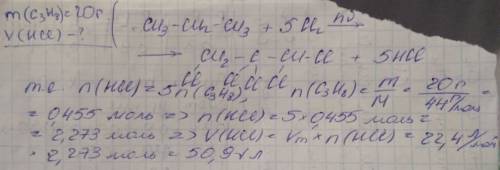 m(C₃H₈)=20г
V(HCl)-?
CH₃-CH₂-CH₃ + 5Cl₂ hν→
→ CH₂-C-CH-Cl + 5HCl
Cl Cl Cl Cl
т.е. n(HCl)=5n(C₃H₈), n(C₃H₈)=m/M=20г/44г/моль=
=0,455 моль => n(HCl)=5×0,455 моль=
=2,273 моль => V(HCl)=Vm×n(HCl)=22,4л/моль
·2,273 моль=50,9л